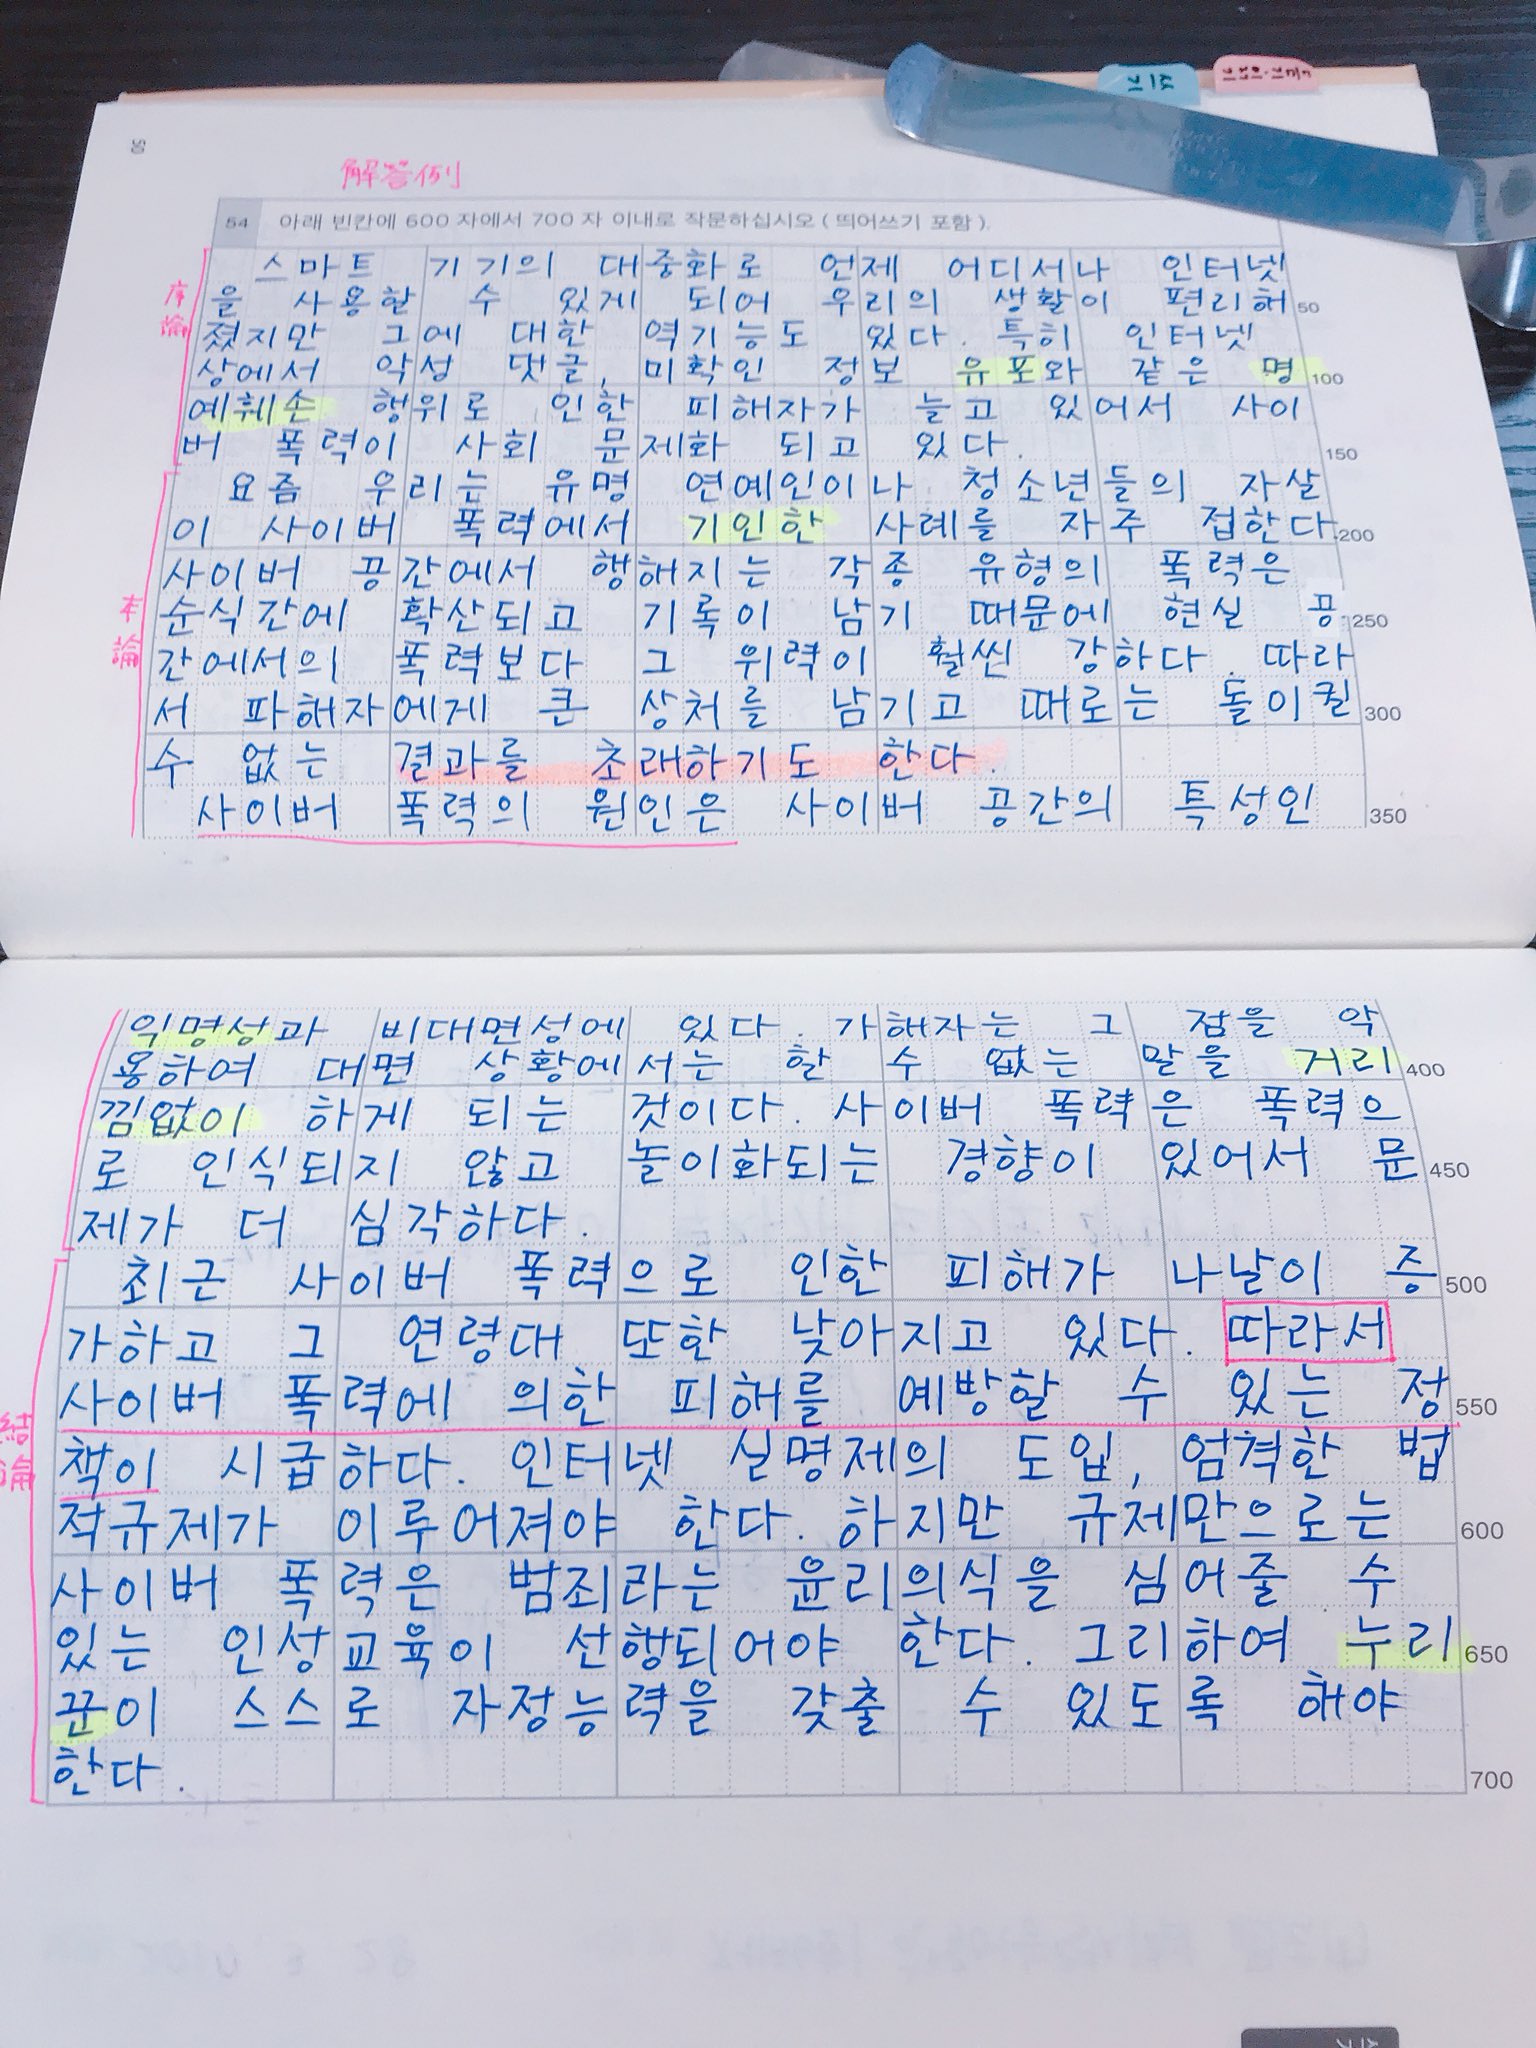 50
解答例
54 아래 빈칸에 600 자에서 700 자 이내로 작문하십시오 ( 띄어쓰기 포함 ).
序論
스마트 기기의 대중화로 언제 어디서나 인터넷
을 사용할 수 있게 되어 우리의 생활이 편리해 50
졌지만 그에 대한 역기능도 있다. 특히 인터넷
상에서 악성 댓글, 미확인 정보 유포와 같은 명 100
예훼손 행위로 인한 피해자가 늘고 있어서 사이
버 폭력이 사회 문제화 되고 있다. 150
本論
요즘 우리는 유명 연예인이나 청소년들의 자살
이 사이버 폭력에서 기인한 사례를 자주 접한다. 200
사이버 공간에서 행해지는 각종 유형의 폭력은
순식간에 확산되고 기록이 남기 때문에 현실 공 250
간에서의 폭력보다 그 위력이 훨씬 강하다. 따라
서 파해자에게 큰 상처를 남기고 때로는 돌이킬 300
수 없는 결과를 초래하기도 한다.
사이버 폭력의 원인은 사이버 공간의 특성인 350
익명성과 비대면성에 있다. 가해자는 그 점을 악
용하여 대면 상황에서는 할 수 없는 말을 거리 400
낌없이 하게 되는 것이다. 사이버 폭력은 폭력으
로 인식되지 않고 놀이화되는 경향이 있어서 문 450
제가 더 심각하다.
結論
최근 사이버 폭력으로 인한 피해가 나날이 증 500
가하고 그 연령대 또한 낮아지고 있다. 따라서
사이버 폭력에 의한 피해를 예방할 수 있는 정 550
책이 시급하다. 인터넷 실명제의 도입, 엄격한 법
적규제가 이루어져야 한다. 하지만 규제만으로는 600
사이버 폭력은 범죄라는 윤리의식을 심어줄 수
있는 인성교육이 선행되어야 한다. 그리하여 누리 650
꾼이 스스로 자정능력을 갖출 수 있도록 해야
한다. 700